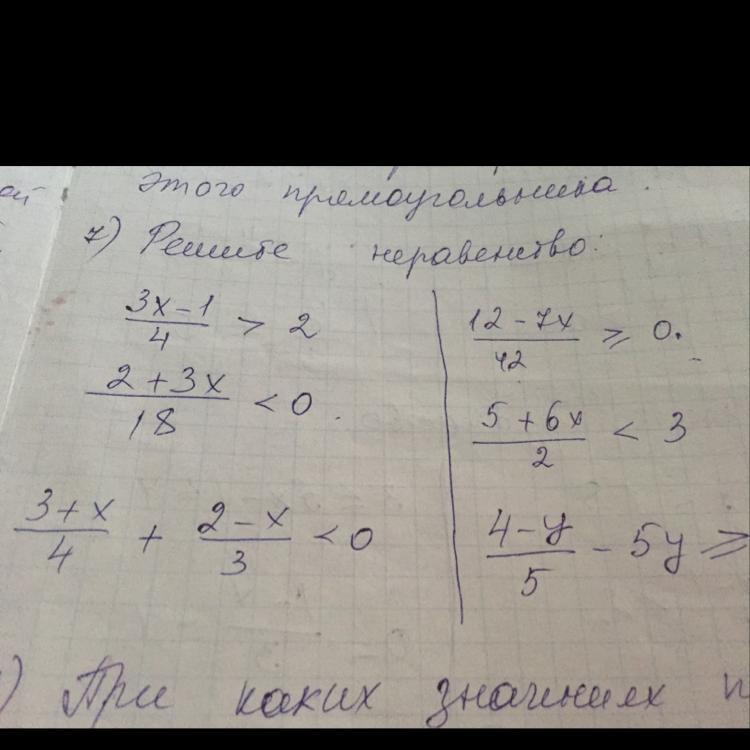 этого прямоугольника.
7) Решите неравенство:
(3x-1)/4 > 2
(2+3x)/18 < 0.
(3+x)/4 + (2-x)/3 < 0
(12-7x)/42 ≥ 0.
(5+6x)/2 < 3
(4-y)/5 - 5y ≥
) При каких значениях